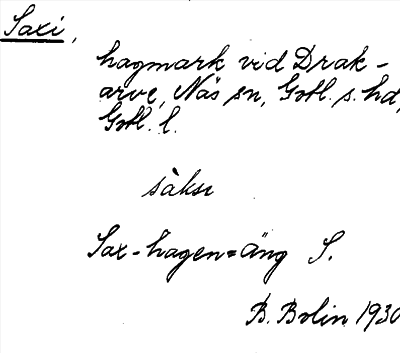 Saxi,
hagmark vid Drak-
arve, Näs sn, Gotl. s. hd,
Gotl. l.
sàksı
Sax-hagen=äng S.
B. Bolin 1930